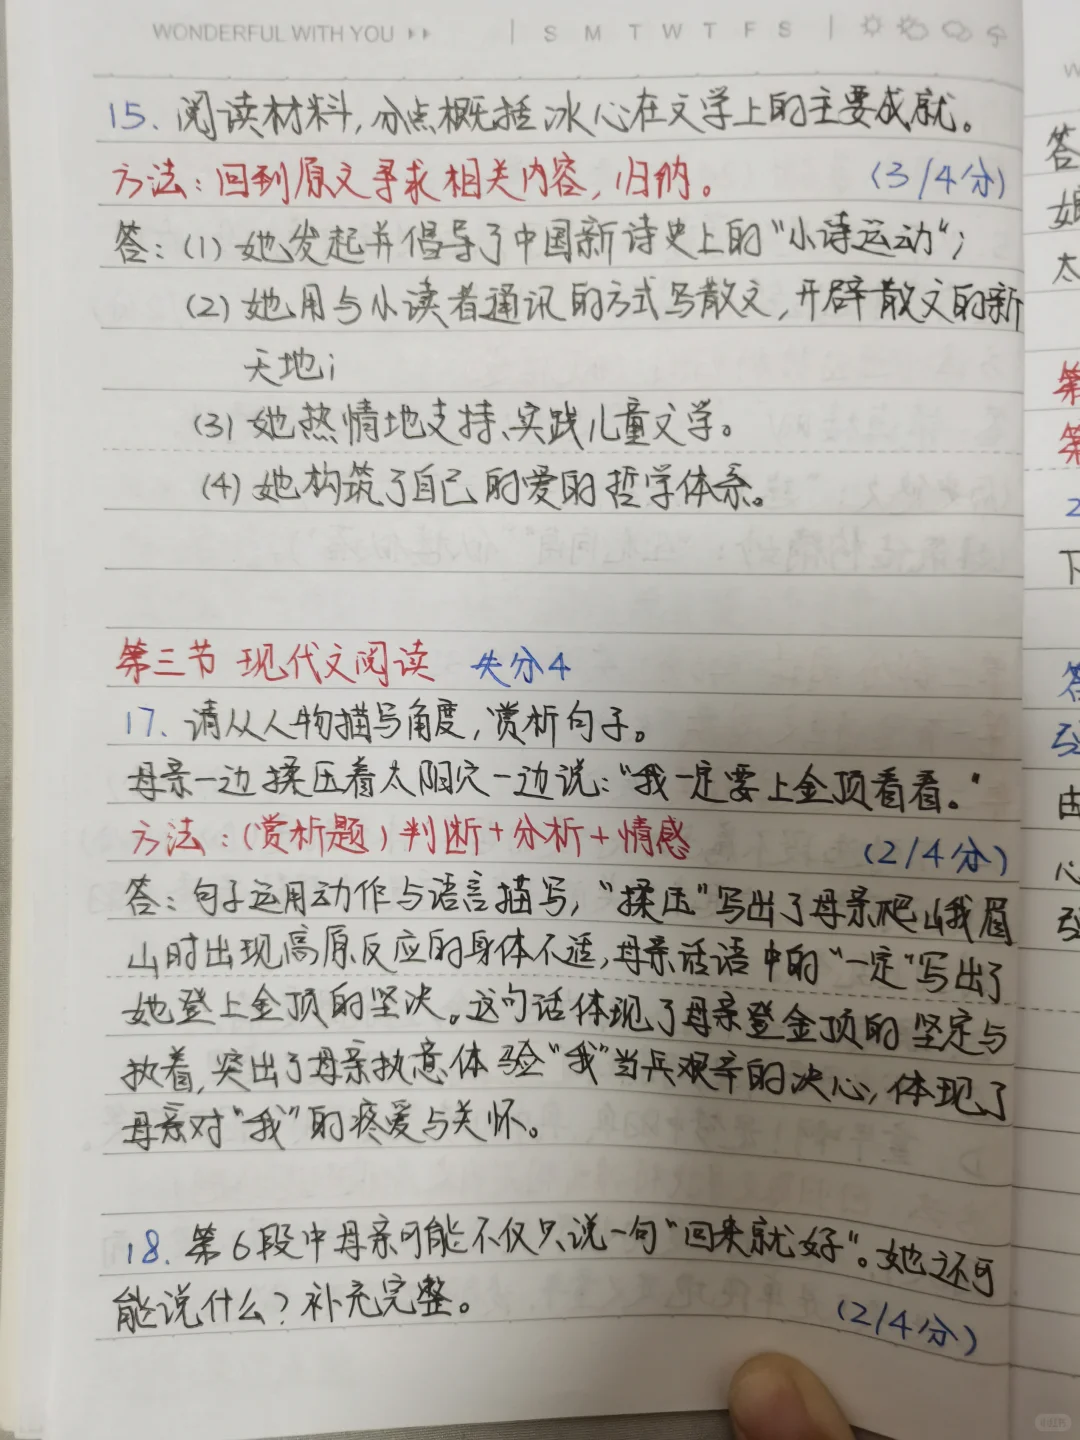 WONDERFUL WITH YOU
S M T W T F S
15. 阅读材料,分点概括冰心在文学上的主要成就。
方法:回到原文寻求相关内容,归纳。 (3/4分)
答:(1)她发起并倡导了中国新诗史上的"小诗运动";
(2)她用与小读者通讯的方式写散文,开辟散文的新
天地;
(3)她热情地支持、实践儿童文学。
(4)她构筑了自己的爱的哲学体系。
第三节 现代文阅读 失分4
17. 请从人物描写角度,赏析句子。
母亲一边揉压着太阳穴一边说:"我一定要上金顶看看。"
方法:(赏析题)判断+分析+情感 (2/4分)
答:句子运用动作与语言描写,"揉压"写出了母亲爬山峨眉
山时出现高原反应的身体不适,母亲话语中的"一定"写出了
她登上金顶的坚决。这句话体现了母亲登金顶的坚定与
执着,突出了母亲执意体验"我"当兵艰辛的决心,体现了
母亲对"我"的疼爱与关怀。
18. 第6段中母亲可能不仅只说一句"回来就好"。她还可
能说什么?补充完整。 (2/4分)
答
太
第
第
下
答
由
心
小红书